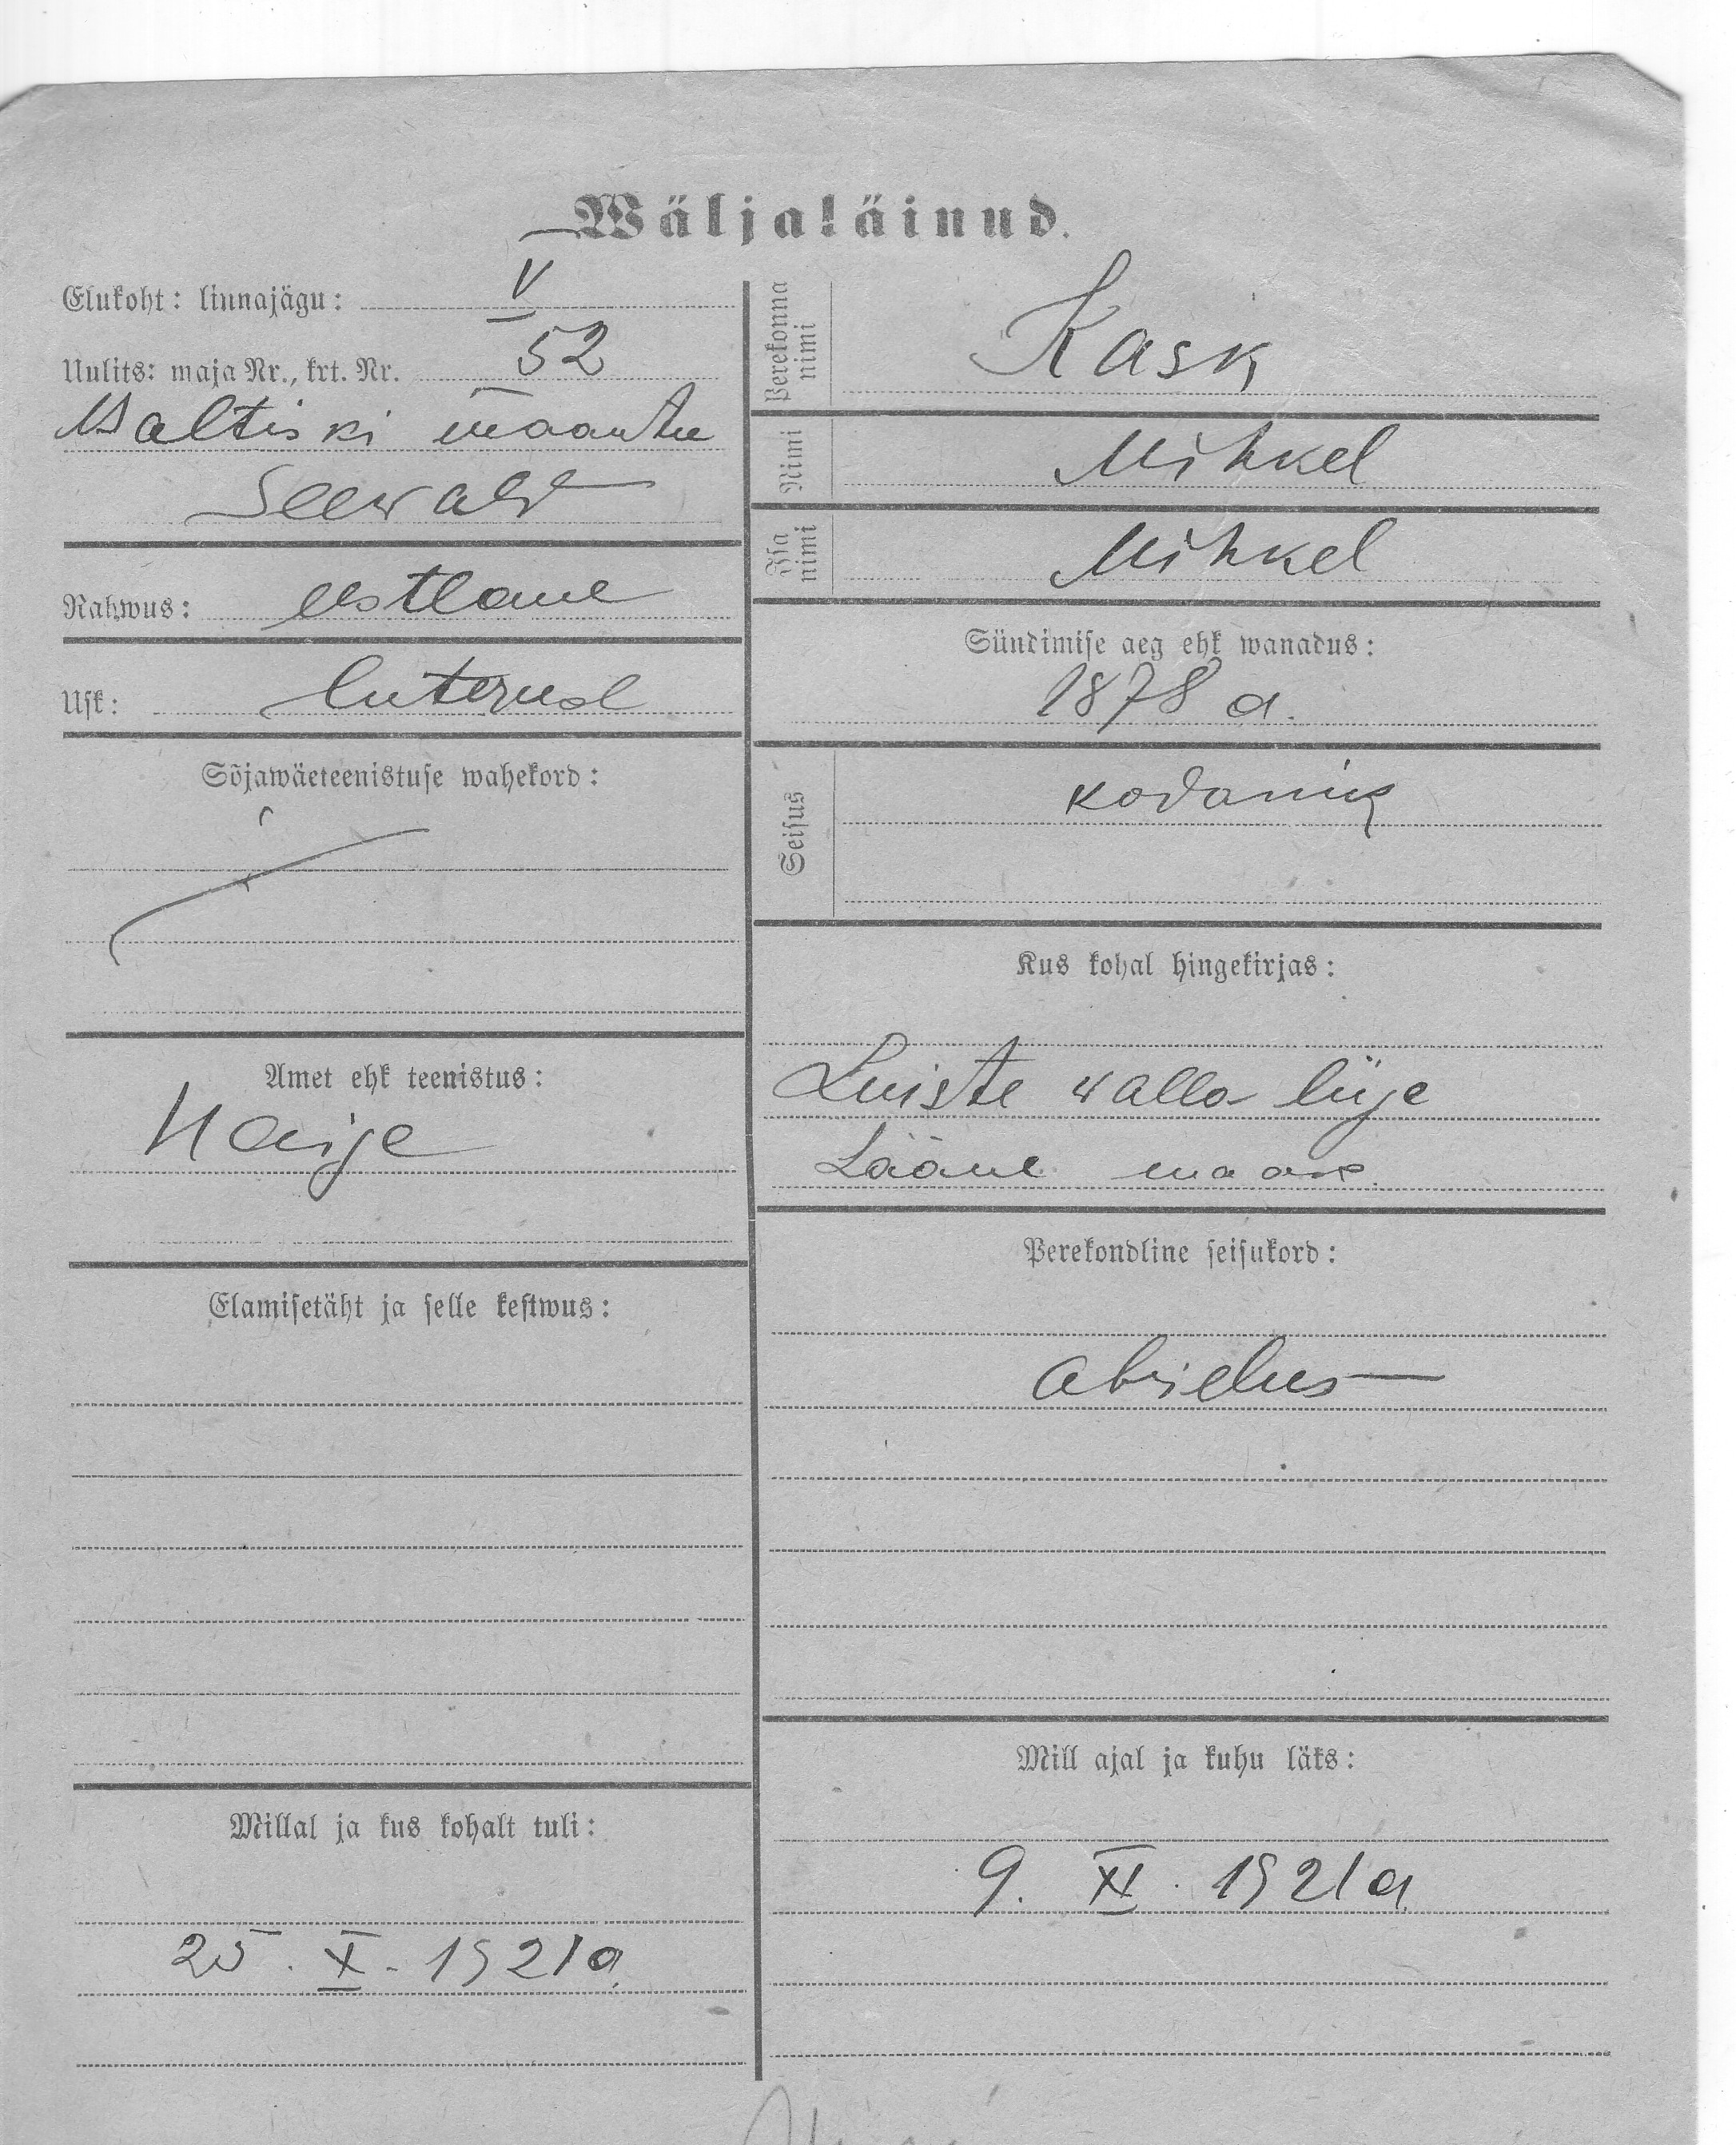 Wäljaläinud.
Elukoht: linnajägu: V
Uulits: maja Nr., krt. Nr. 52
Baltiski maantee
Seewald
Rahwus: eestlane
Usk: luterus
Sõjawäeteenistuse wahekord:
Amet ehk teenistus:
Haige
Elamisetäht ja selle kestwus:
Millal ja kus kohalt tuli:
25. X. 1921 a.
Perekonna nimi Kask
Nimi Mihkel
Isa nimi Mihkel
Sündimise aeg ehk wanadus:
1878 a.
Seisus kodanik
Kus kohal hingekirjas:
Luiste walla liige
Lääne maak.
Perekondline seisukord:
abielus
Mill ajal ja kuhu läks:
9. XI. 1921 a